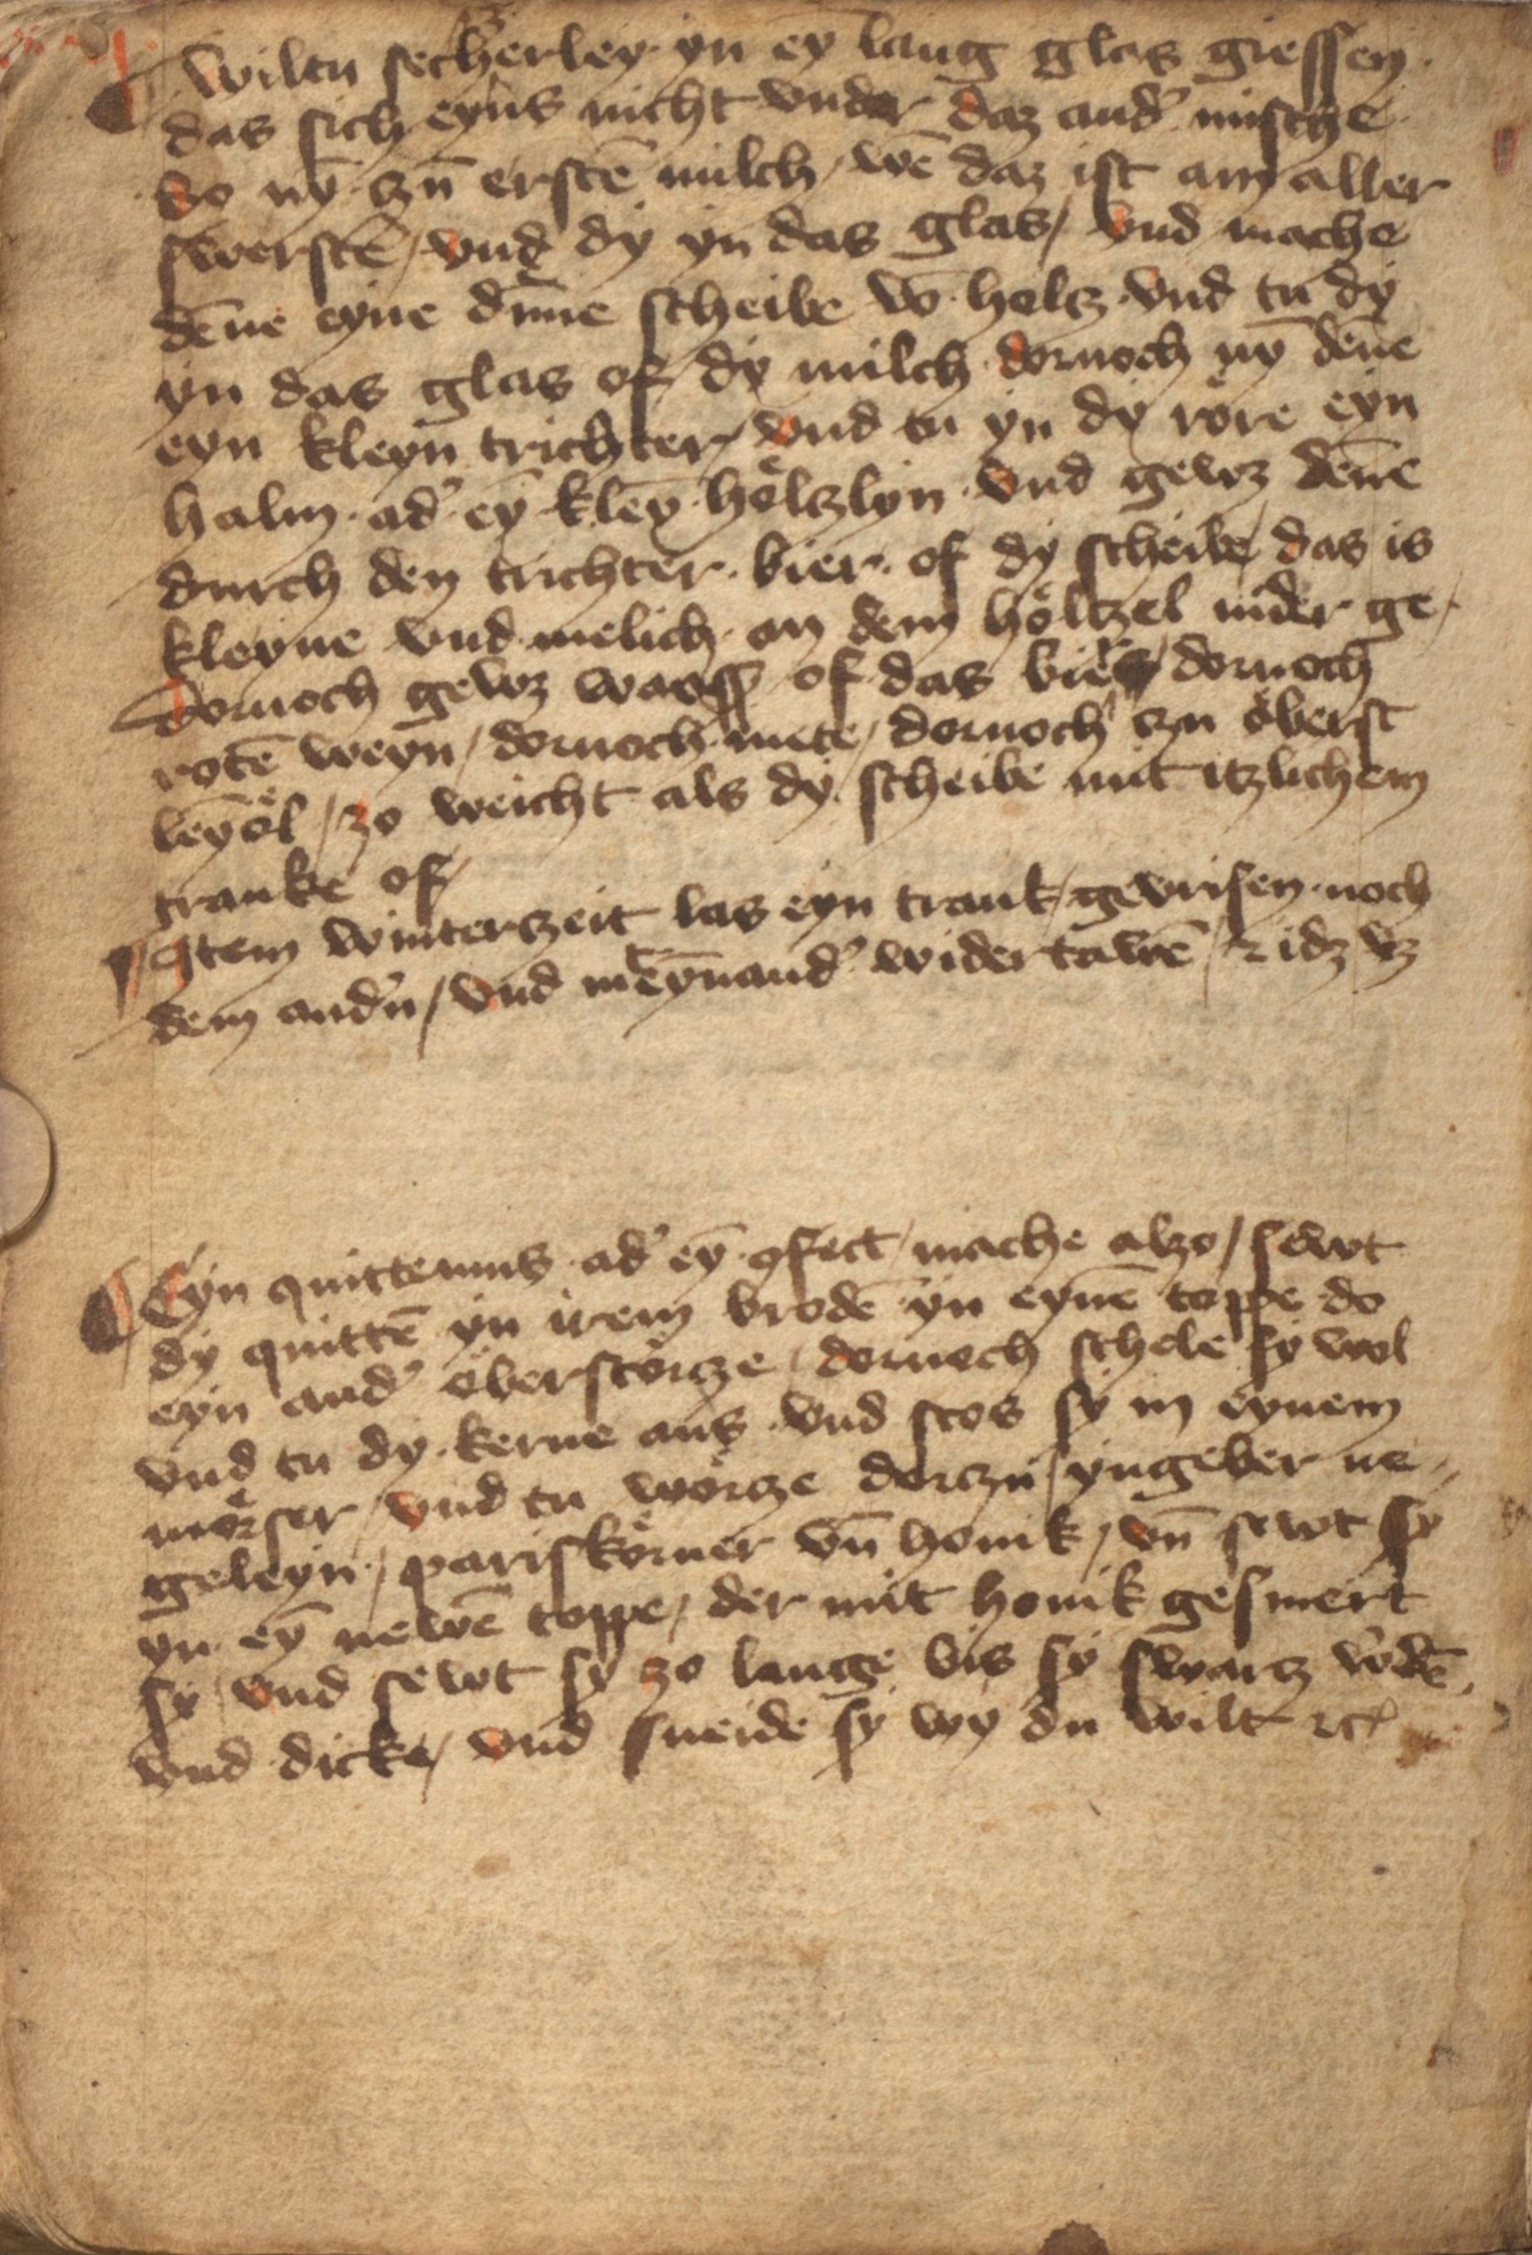 Wiltu secherley yn ey lang glas giessen
das sich eyns nicht vnder daz and' mische
So nȳ czū erstē milch / wē daz ist am aller
swerstē / vnd dy yn das glas / vnd mache
dēne eyne dūne scheibe vō holcz vnd tu dy
yn das glas of dy milch dornoch nȳ dēne
eyn kleyn trichter / vnd tu yn dy röre eyn
halm ad' eȳ kleȳ höltzlyn vnd gewz dēne
durch den trichter bier of dy scheibe das is
kleyne vnd melich an dem höltzel nider ge
dornoch gewz wass' of das bier / dornoch
rotē weyn / dornoch mete / dornoch czu öberst
leȳöl / zo weicht als dy scheibe mit itzlichem
tranke of /
Item winterczeit las eyn trank gevrisen noch
dem and'n / vnd eynand' wider tawē
Eyn quittemus ad' eȳ ꝯfect / mache alzo / sewt
dy quittē yn irem brodē yn eynē toppe do
eyn and' öberstörcze / dornoch schele sy wol
vnd tu dy kerne aus vnd stos sy in eynem
mörser / vnd tu wörcze dorczu / yngeber ne-
geleyn / pariskörner vn̄ honik / vn̄ sewt sy
yn eȳ newē toppe / der mit honik gesmert
sy / vnd sewt sy zo lange bis sy swarcz w'dē
vnd dicke / vnd sneide sy wy du wilt ⁊c̄